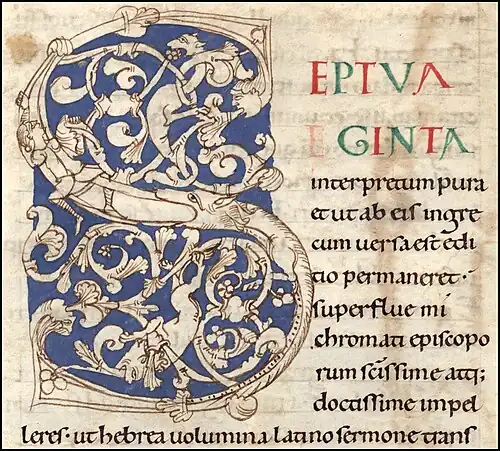 SEPTVA
GINTA
interpretum pura
et ut ab eis in gre
cum uersa est edi
tio permaneret·
superflue mi
chromati episcopo
rum scissime atq;
doctissime impel
leres· ut hebrea uolumina latino sermone trans